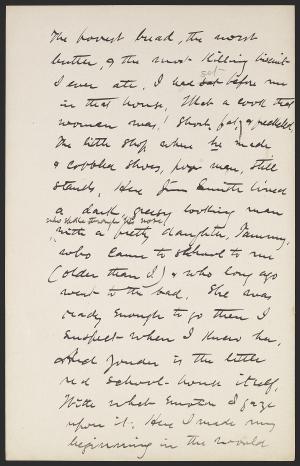 The poorest bread, the worst
butter, & the most killing biscuit
I ever ate, I had set before me
in that house, What a cook that
woman was! Short, fat, & freckled.
The little shop where he made
& cobbled shoes, poor man, still
stands, Here Jim Smith lived
a dark, greasy looking man
who spoke through his nose,
with a pretty daughter, Tammy,
who came to school to me
(older than I) & who long ago
went to the bad. She was
ready enough to go then I
suspect when I knew her,
And yonder is the little
red school-house itself,
With what emotion I gaze
upon it. Here I made my
beginning in the world